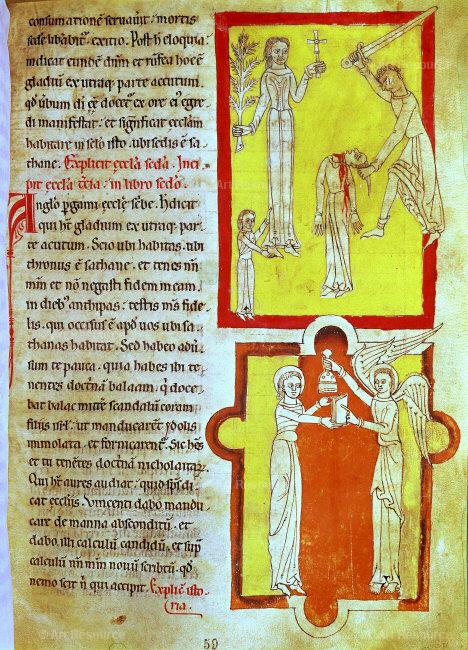 consumatione servavit: mortis
sede
indicat eundē dn̄m et
gladiū ex utraq; parte acutum.
qd̄ di ex ore ei egre
di manifestat: et significat ecclam̄
habitare in sclo isto ubi sedis ē sa
thane. Explicit eccla sc̄da. Inci
pit eccla t̄cia: in libro sc̄do.
Anglo pgami eccl̄e sc̄be. H̄ dicit
qui ht̄ gladium ex utraq; par
te acutum. Scio ubi habitas. ubi
thronus ē sathane. et tenes nm̄
mm̄ et nō negasti fidem meam.
in dieb; anthipas: testis ms̄ fide
lis. qui occisus ē apd̄ vos ubi sa
thanas habitat. Sed habeo adū
sum te pauca. quia habes ibi te
nentes doct̄nā balaam. q̄ doce
bat balac mitte scandalū coram
filiis isrl̄. ut manducarent ydolis
immolata. et fornicarent. Sic hēs
et tu tenētes doct̄nā nicholaitar̄
Qui ht̄ aures audiat: quid sp̄s di
cat eccl̄iis. Vincenti dabo mandu
care de manna absconditū. et
dabo illi calculū candidū. et sup
calculū nm̄ novū scriptū. qd̄
nemo scit n̄ qui accipit. Explic̄ isto
ria.
59
© Art Resource